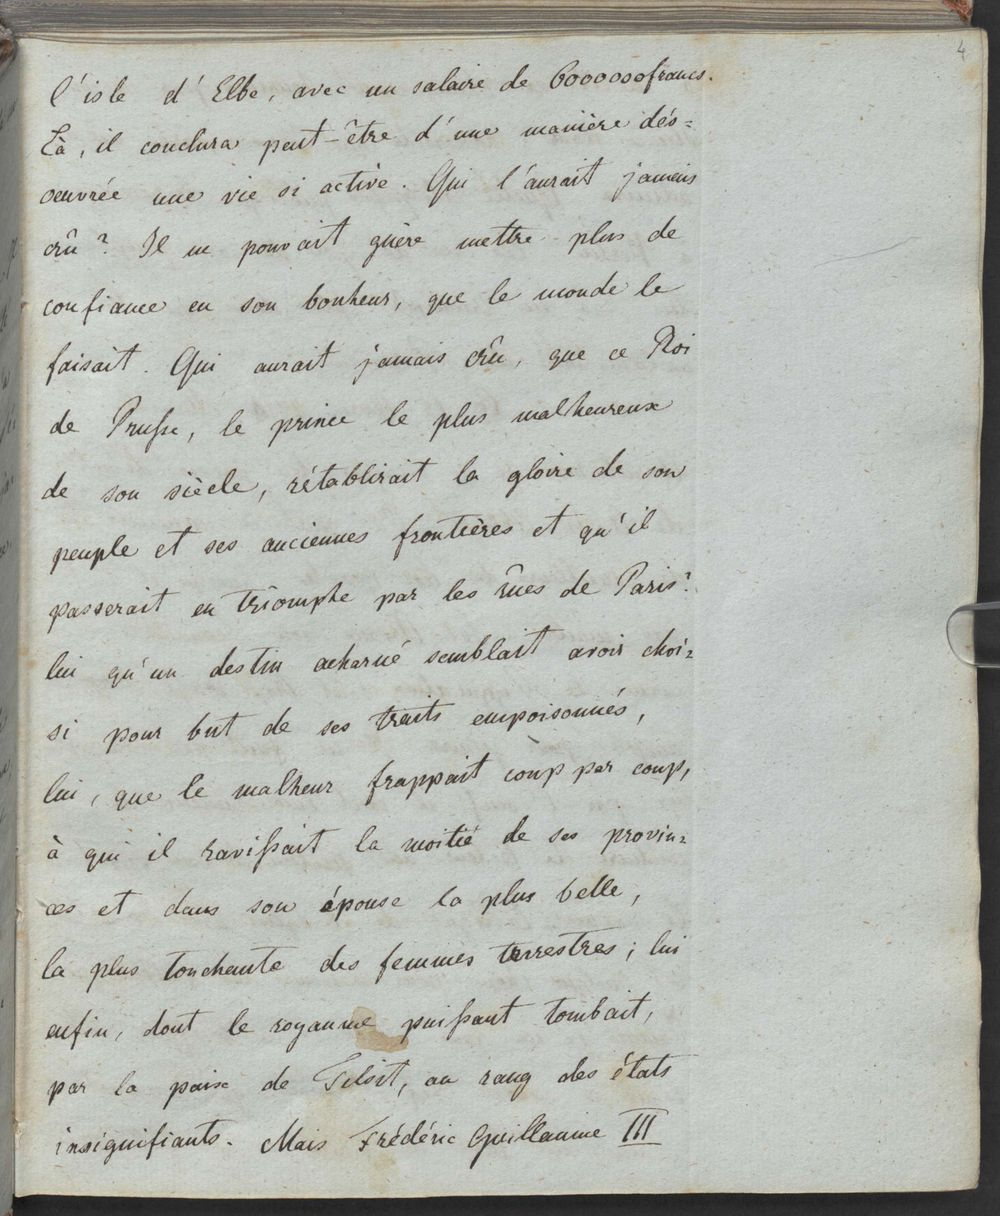 4
l'isle d'Elbe, avec un salaire de 6000000francs.
Là, il conclura peut-être d'une manière dés=
oeuvrée une vie si active. Qui l'aurait jamais
crû? Il ne pouvait guère mettre plus de
confiance en son bonheur, que le monde le
faisait. Qui aurait jamais crû, que ce Roi
de Prusse, le prince le plus malheureux
de son siècle, rétablirait la gloire de son
peuple et ses anciennes frontières et qu'il
passerait en triomphe par les rûes de Paris?
lui qu'un destin acharné semblait avoir choi=
si pour but de ses traits empoisonnés,
lui, que le malheur frappait coup par coup,
à qui il ravissait la moitié de ses provin=
ces et dans son épouse la plus belle,
la plus touchante des femmes terrestres; lui
enfin, dont le royaume puissant tombait,
par la paix de Tilsit, au rang des états
insignifiants. Mais Frédéric Guillaume III